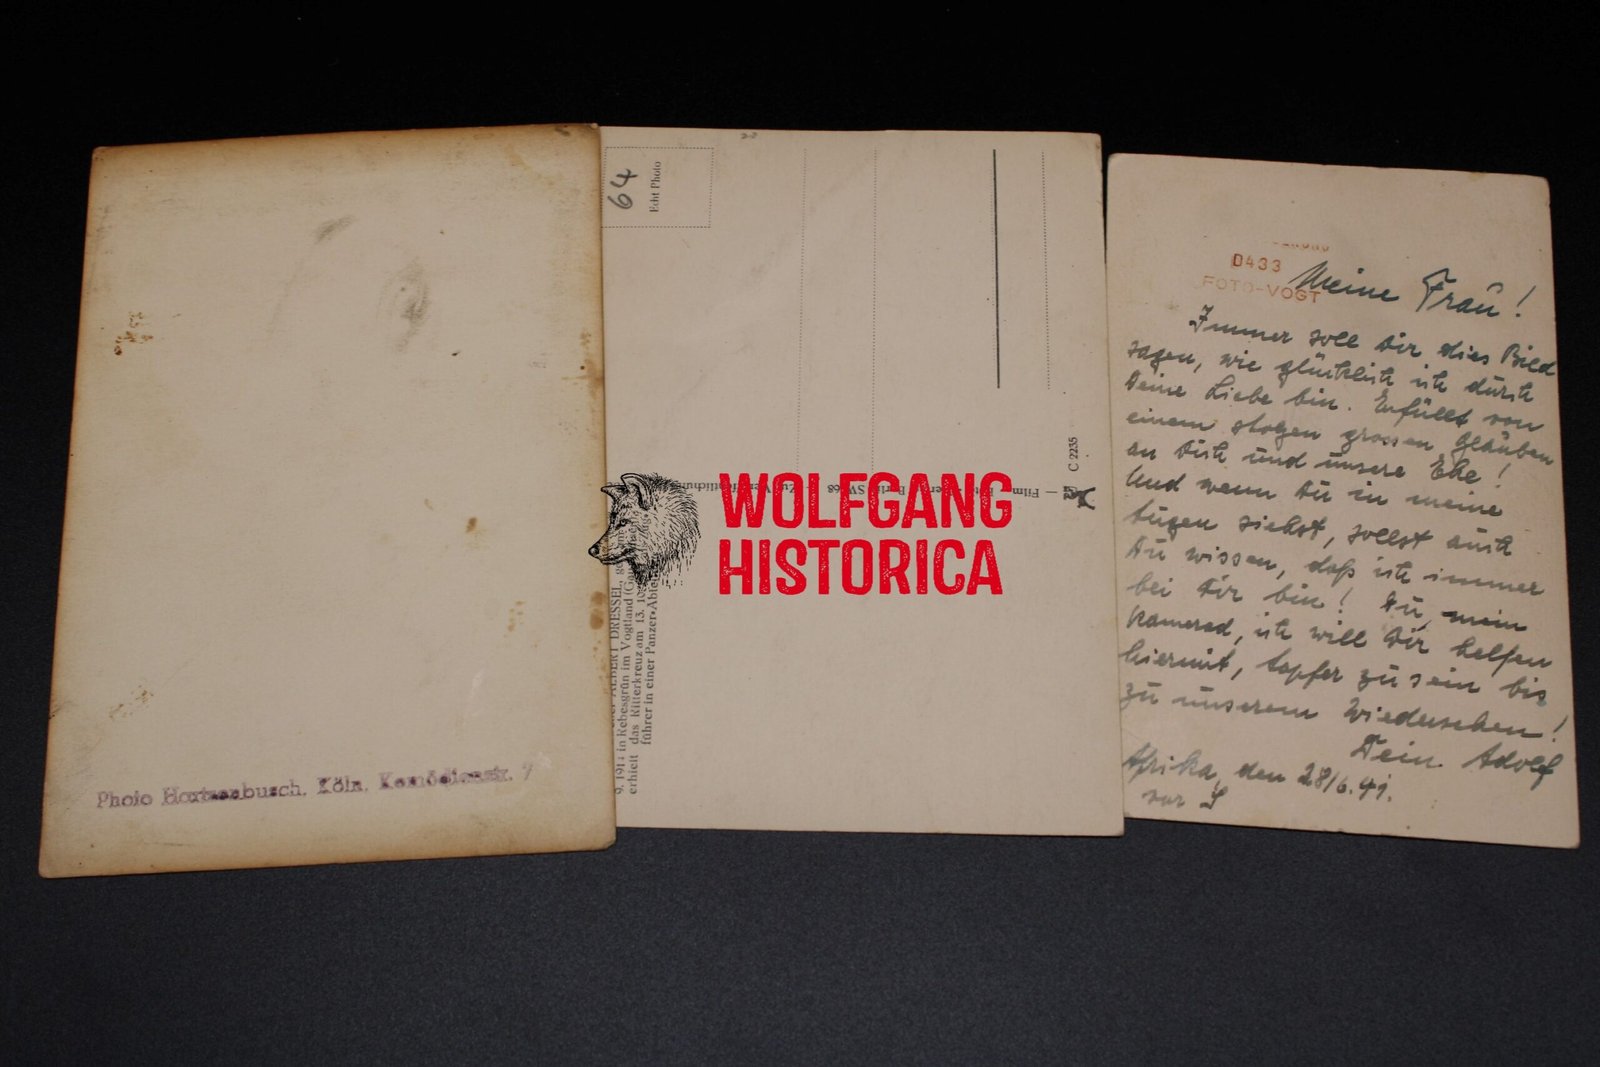 Photo Hortzenbusch, Köln, Komödienstr. 7
64
Echt Photo
C 2235
Film-
ALBERT DRESSEL,
9. 1914 in Rebesgrün im Vogtland
erhielt das Ritterkreuz am 13. 10
führer in einer Panzer-Abtei
WOLFGANG
HISTORICA
D433
FOTO-VOGT
Meine Frau!
Immer soll Dir dies Bild
sagen, wie glücklich ich durch
Deine Liebe bin. Erfüllt von
einem stolzen grossen Glauben
an Dich und unsere Ehe!
Und wenn Du in meine
Augen siehst, sollst auch
Du wissen, daß ich immer
bei Dir bin! Du, mein
Kamerad, ich will Dir helfen
hiermit, tapfer zu sein bis
zu unserem Wiedersehen!
Dein Adolf
Afrika, den 28/6.41.
vor S